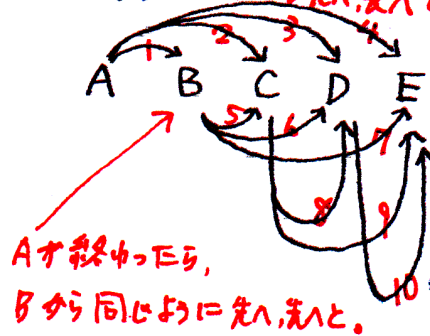 先へ、先へと
1 2 3 4
A B C D E
5 6 7
8 9
10
Aが終わったら,
Bから同じように先へ,先へと。